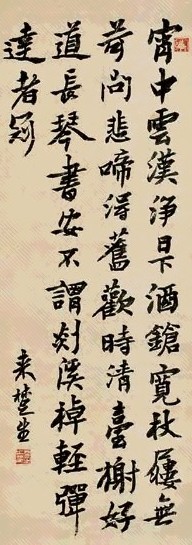 宵中雲漢淨日下酒鎗寬秋屨無
苛問悲啼得舊歡時清臺榭好
道長琴書安不謂剡溪棹輕彈
達者冠
来楚生